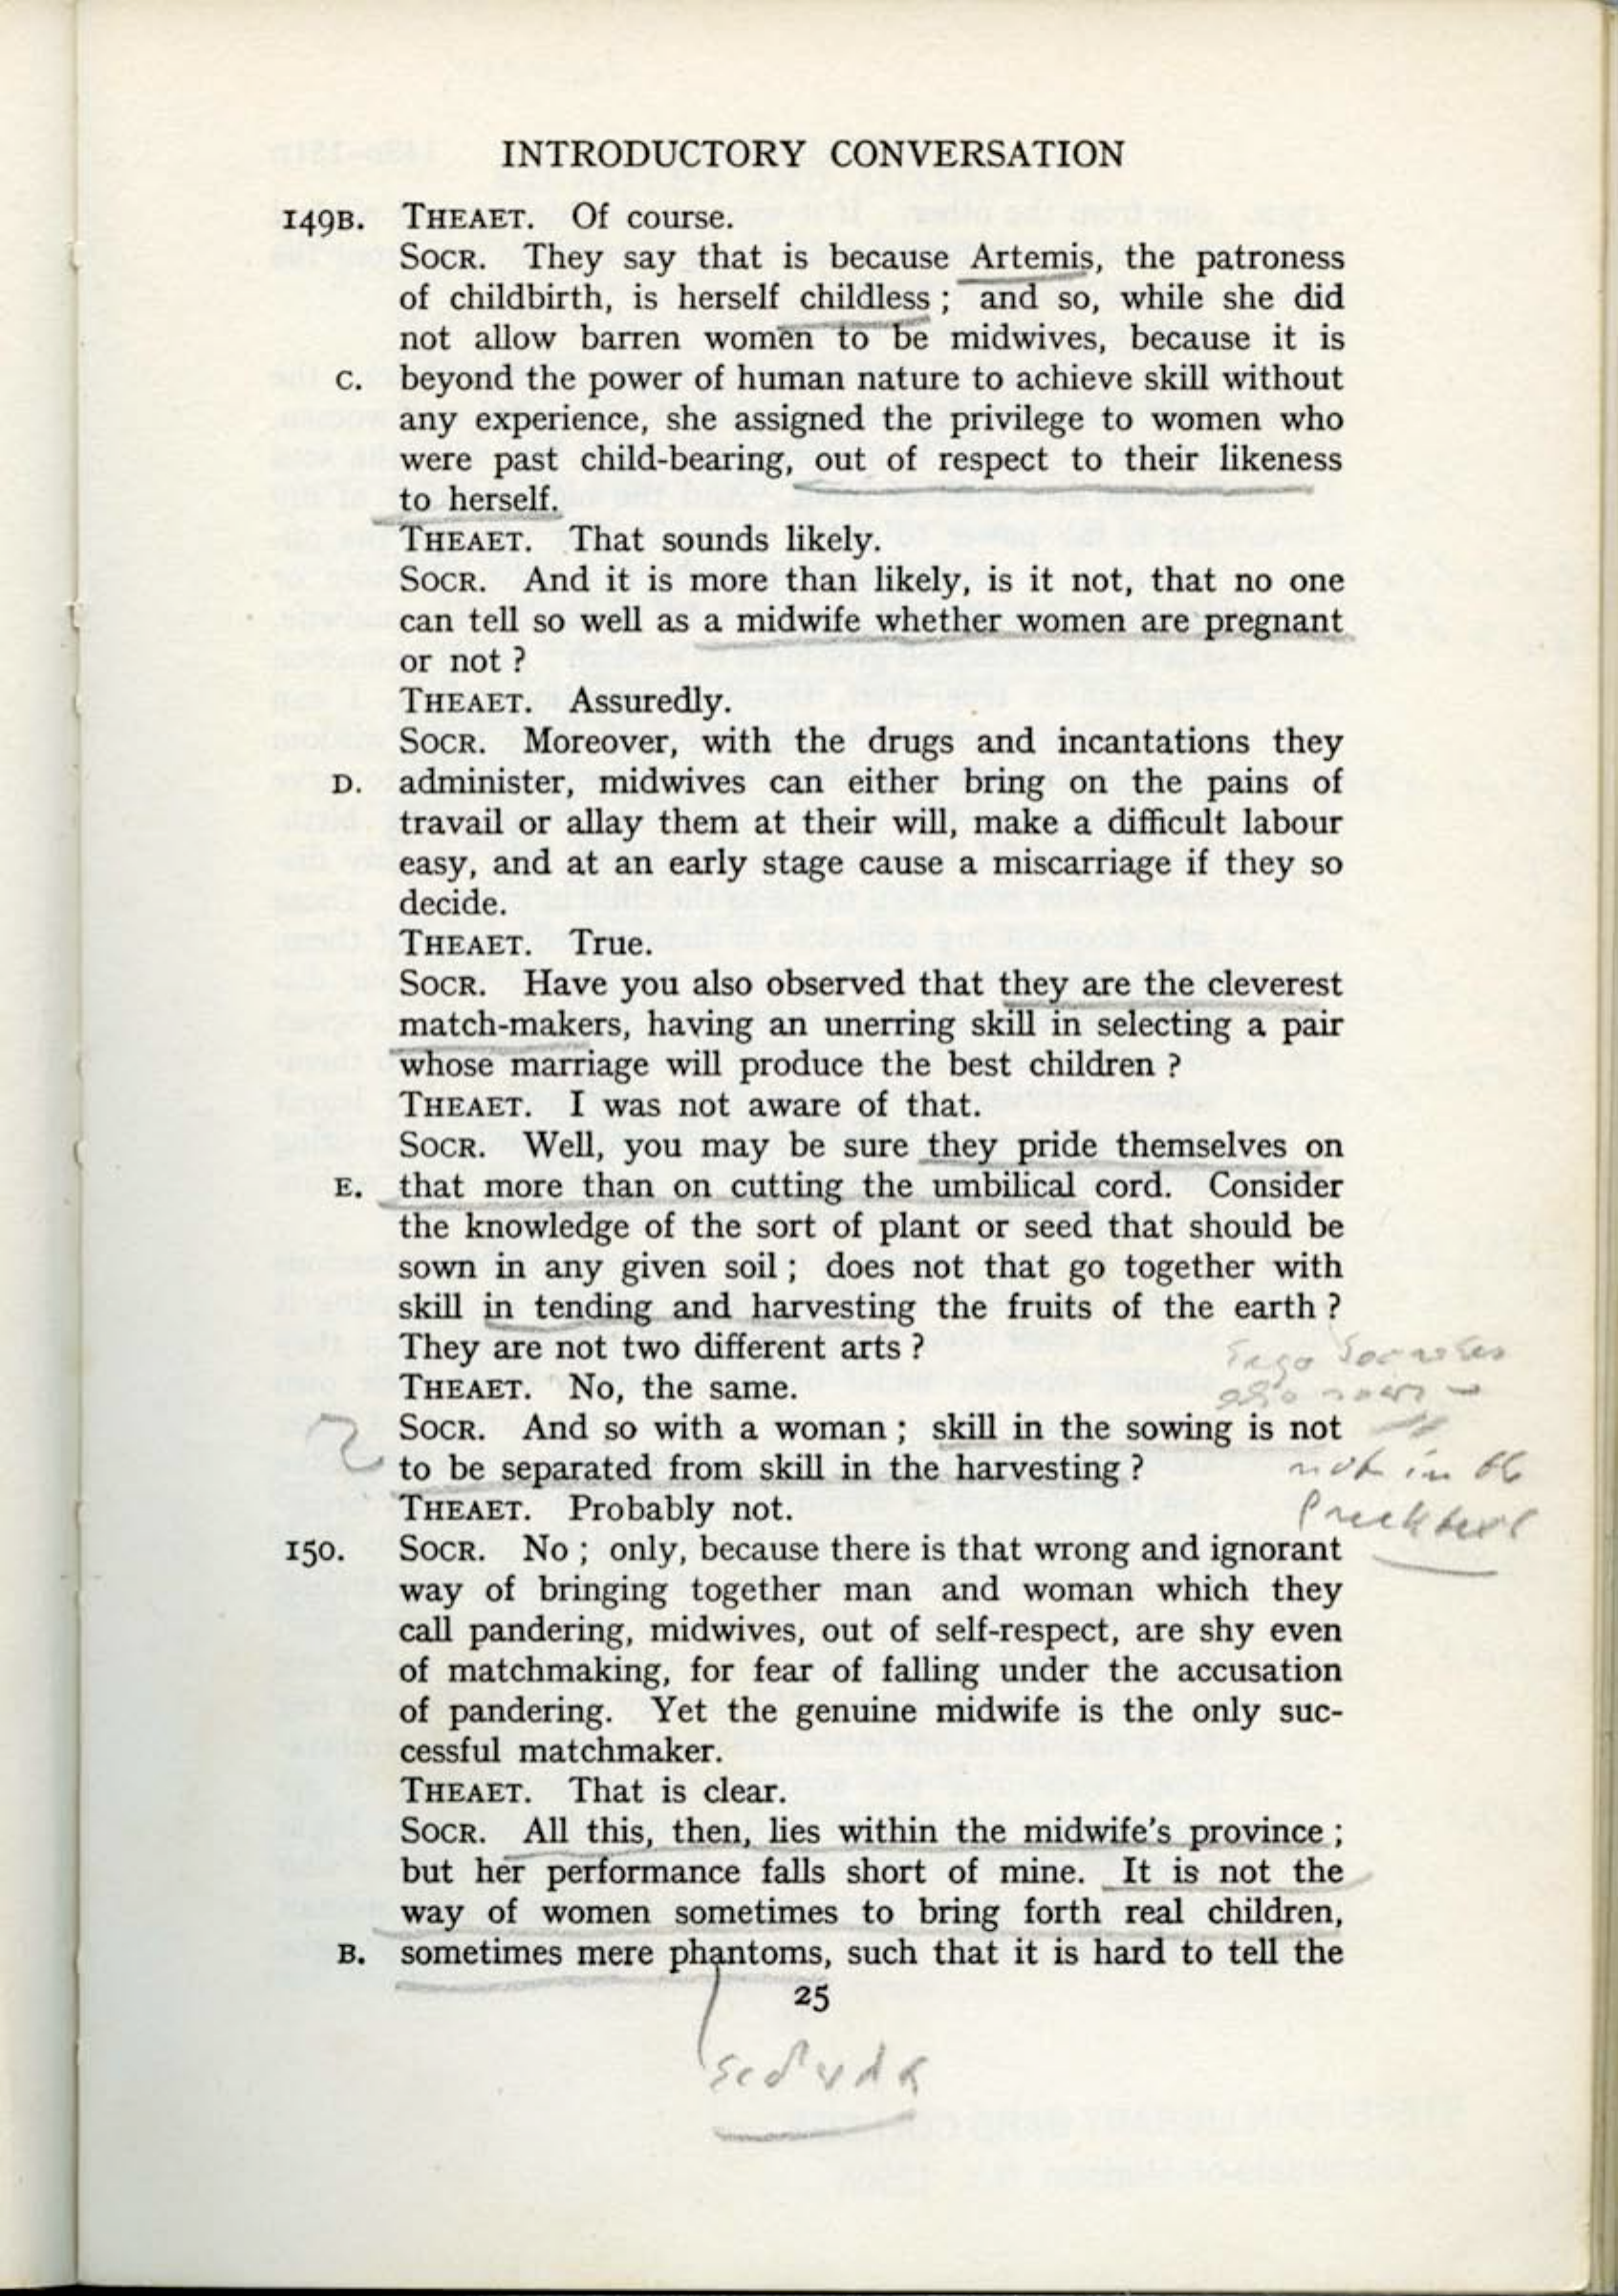 INTRODUCTORY CONVERSATION
149B. THEAET. Of course.
SOCR. They say that is because Artemis, the patroness
of childbirth, is herself childless ; and so, while she did
not allow barren women to be midwives, because it is
C. beyond the power of human nature to achieve skill without
any experience, she assigned the privilege to women who
were past child-bearing, out of respect to their likeness
to herself.
THEAET. That sounds likely.
SOCR. And it is more than likely, is it not, that no one
can tell so well as a midwife whether women are pregnant
or not ?
THEAET. Assuredly.
SOCR. Moreover, with the drugs and incantations they
D. administer, midwives can either bring on the pains of
travail or allay them at their will, make a difficult labour
easy, and at an early stage cause a miscarriage if they so
decide.
THEAET. True.
SOCR. Have you also observed that they are the cleverest
match-makers, having an unerring skill in selecting a pair
whose marriage will produce the best children ?
THEAET. I was not aware of that.
SOCR. Well, you may be sure they pride themselves on
E. that more than on cutting the umbilical cord. Consider
the knowledge of the sort of plant or seed that should be
sown in any given soil ; does not that go together with
skill in tending and harvesting the fruits of the earth ?
They are not two different arts ?
Ergo Socrates
THEAET. No, the same.
also sows
SOCR. And so with a woman ; skill in the sowing is not
to be separated from skill in the harvesting ?
not in
THEAET. Probably not.
150. SOCR. No ; only, because there is that wrong and ignorant
way of bringing together man and woman which they
call pandering, midwives, out of self-respect, are shy even
of matchmaking, for fear of falling under the accusation
of pandering. Yet the genuine midwife is the only suc-
cessful matchmaker.
THEAET. That is clear.
SOCR. All this, then, lies within the midwife's province ;
but her performance falls short of mine. It is not the
way of women sometimes to bring forth real children,
B. sometimes mere phantoms, such that it is hard to tell the
25